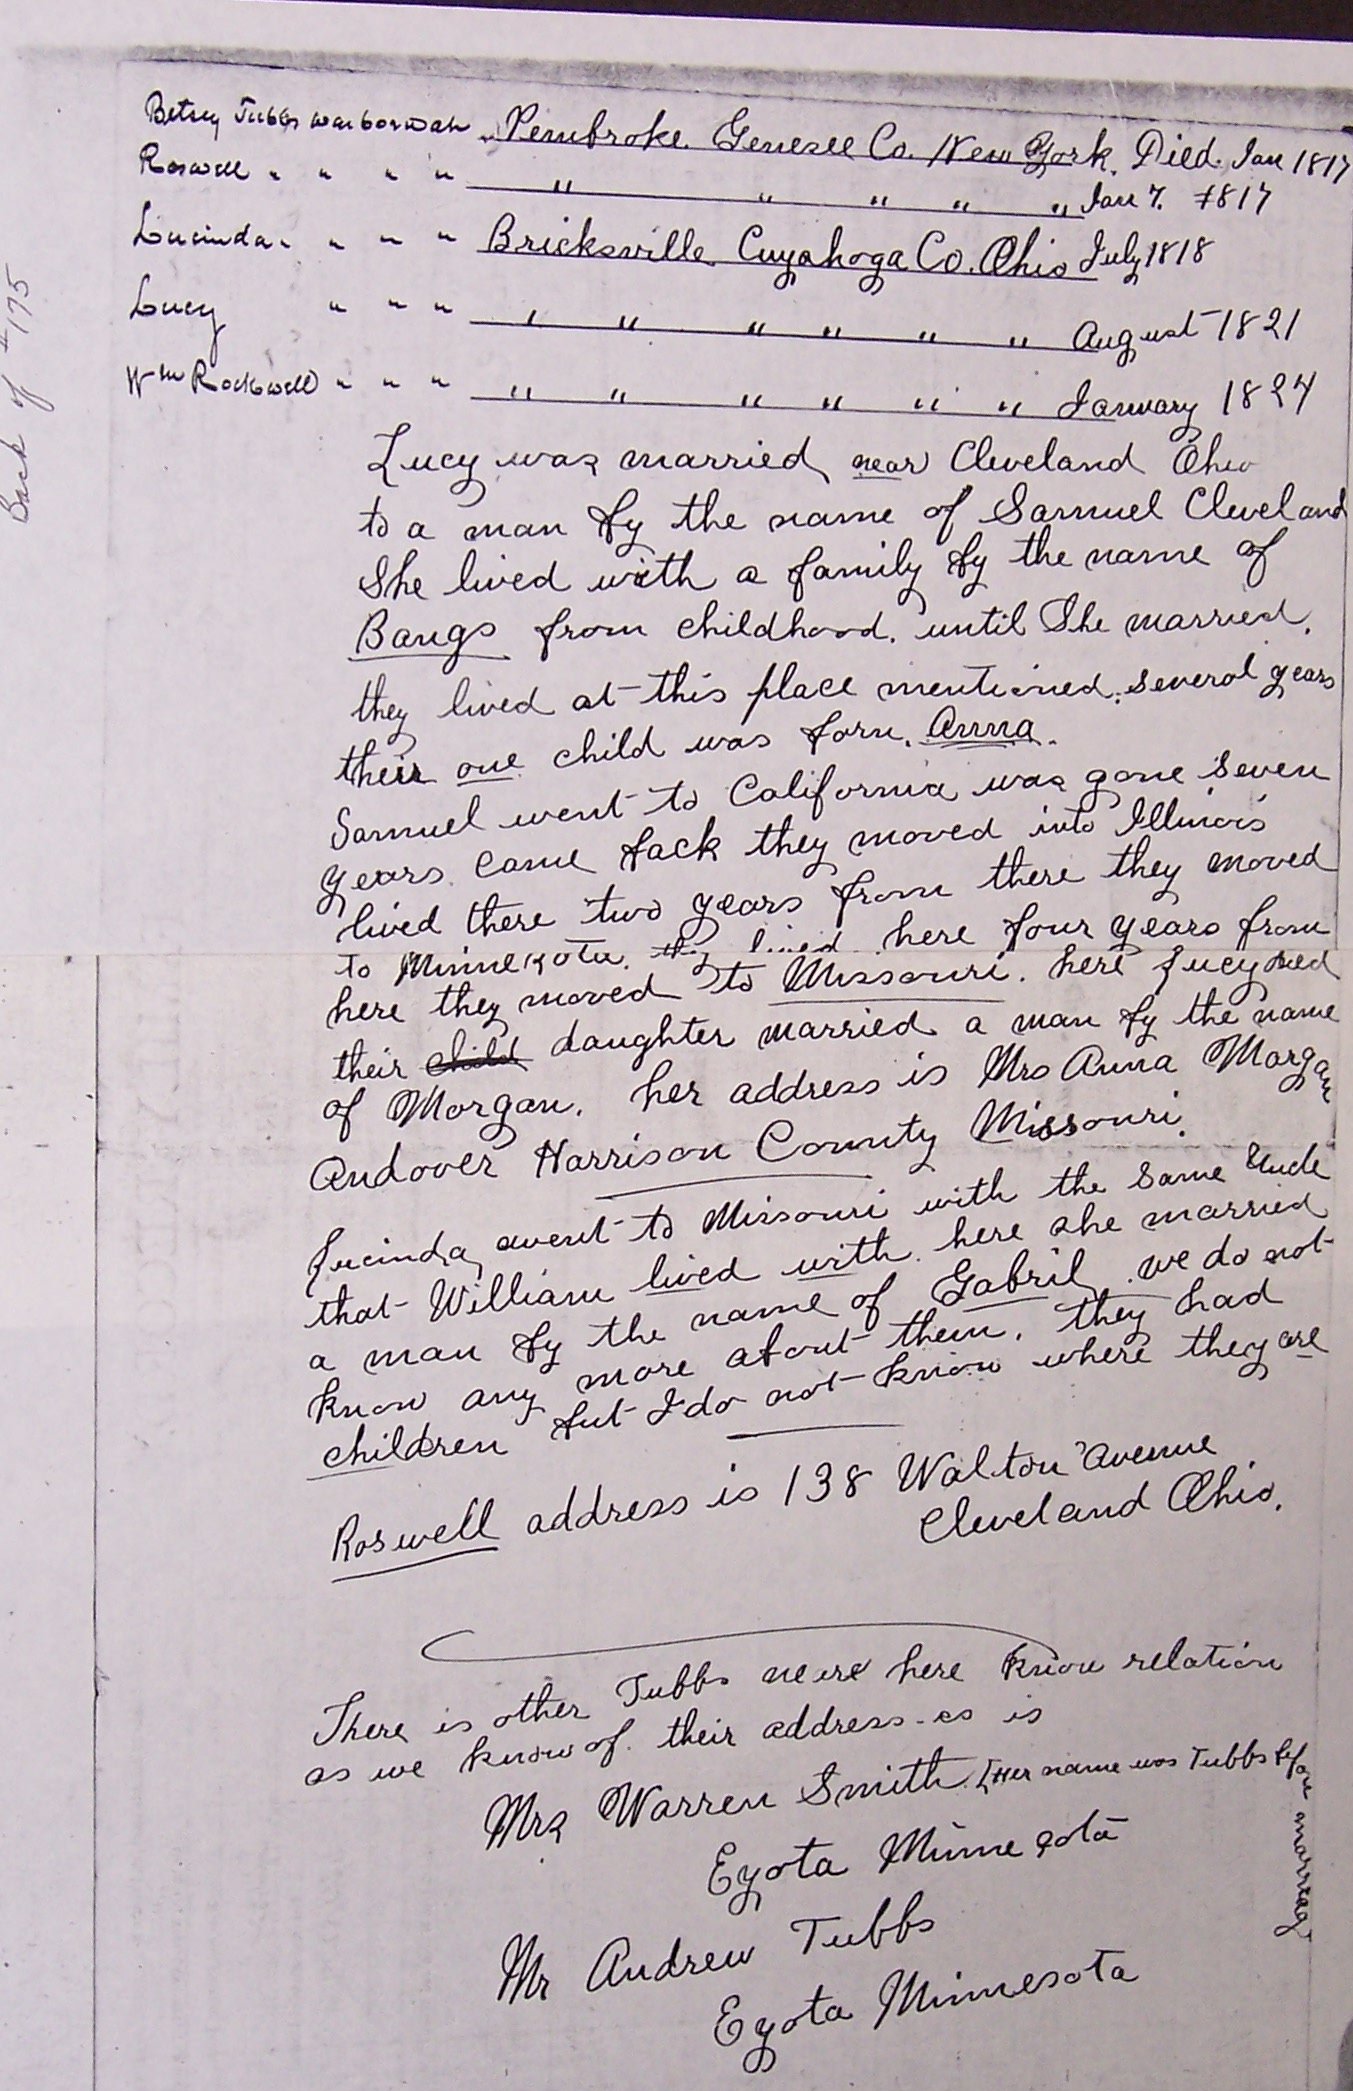 Betsey Tubbs was born in Pembroke. Genesee Co. New York. Died. Jan 1817
Roswell " " " " " " " " " Jan 7. 1817
Lucinda " " " " Bricksville Cuyahoga Co. Ohio July 1818
Lucy " " " " " " " " " August 1821
Wm Rockwell " " " " " " " " " January 1824
Lucy was married near Cleveland Ohio
to a man by the name of Samuel Cleveland
She lived with a family by the name of
Bangs from childhood. until She married.
they lived at this place mentioned. several years
their one child was born. Anna.
Samuel went to California was gone seven
years. came back they moved into Illinois
lived there two years from there they moved
to Minnesota. they lived here four years from
here they moved to Missouri. here Lucy died
their child daughter married a man by the name
of Morgan. her address is Mrs Anna Morgan
Andover Harrison County Missouri.
Lucinda went to Missouri with the same Uncle
that William lived with. here she married
a man by the name of Gabril. we do not
know any more about them. they had
children but I do not know where they are
Roswell address is 138 Walton Avenue
Cleveland Ohio.
There is other Tubbs here know relation
as we know of. their address-es is
Mrs Warren Smith [Her name was Tubbs before marreag
Eyota Minnesota
Mr Andrew Tubbs
Eyota Minnesota
Back of #175